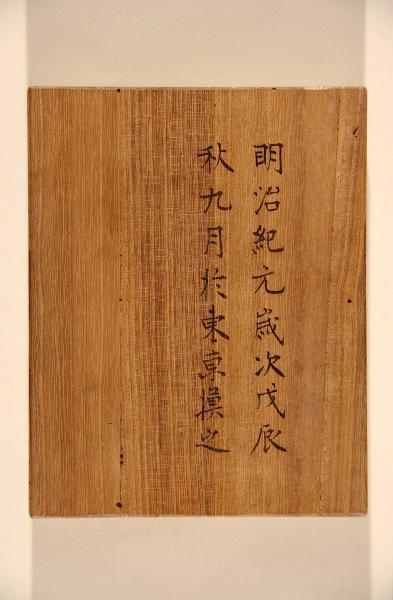 明治紀元歳次戊辰
秋九月於東京摸之